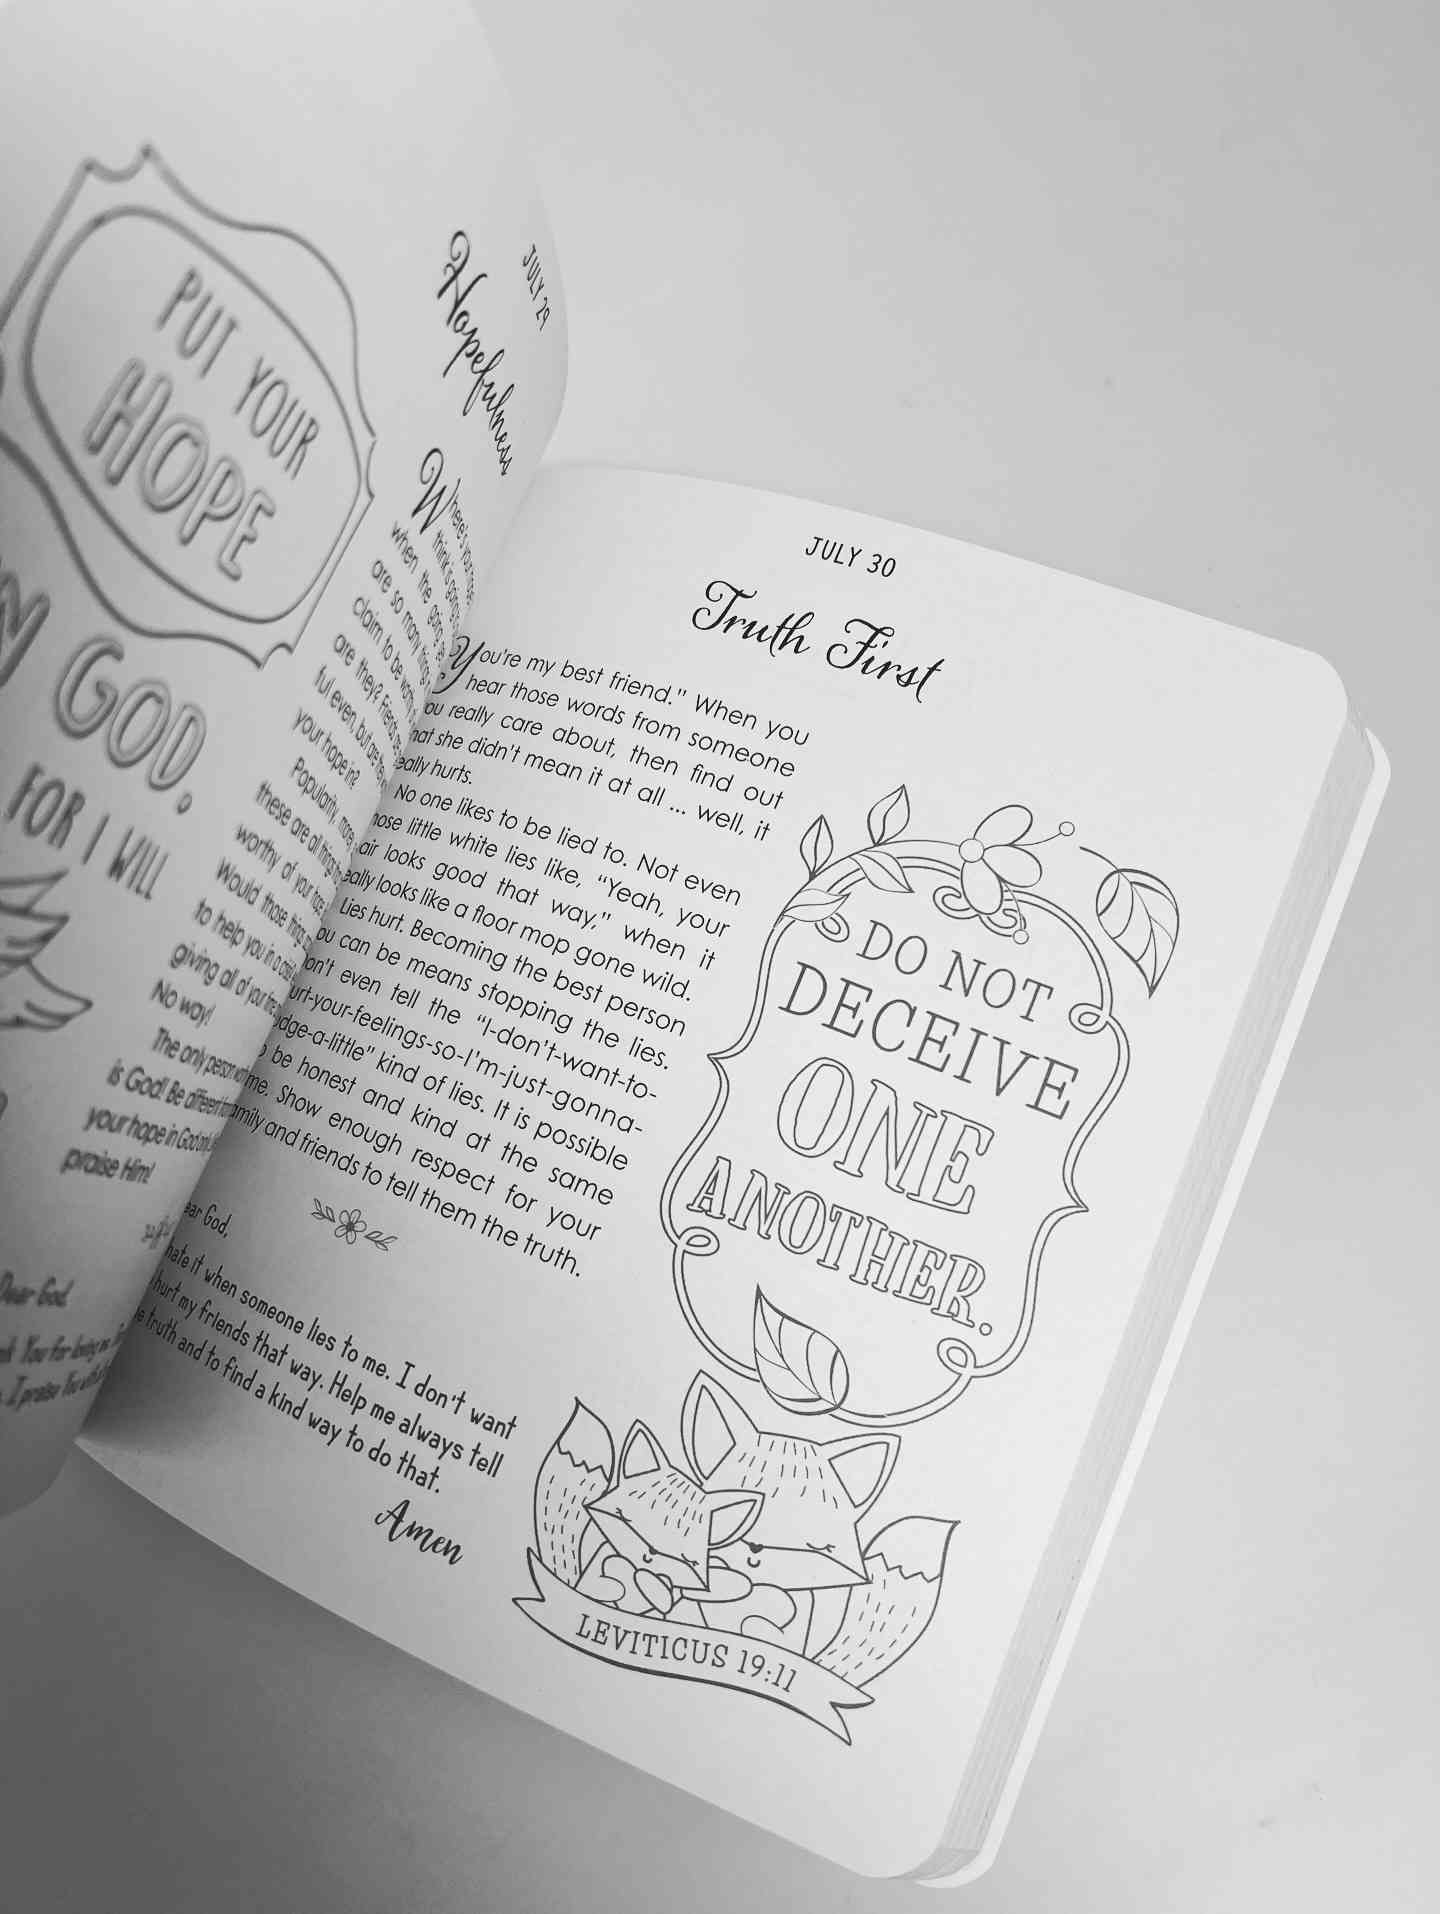 PUT YOUR
HOPE
GOD,
FOR I WILL
JULY 29
Hopefulness
Where's your
think is going
when the going
are so many things
claim to be worthy
are they?
ful even, but are they
your hope in?
Popularity,
these are all things
worthy of your hope
Would those things
to help you in a
giving all of your
No way!
The only person
is God! Be different
your hope in God
praise Him!
Dear God,
You for loving
I praise You
JULY 30
Truth First
You're my best friend." When you
hear those words from someone
you really care about, then find out
that she didn't mean it at all ... well, it
really hurts.
No one likes to be lied to. Not even
those little white lies like, "Yeah, your
hair looks good that way," when it
really looks like a floor mop gone wild.
Lies hurt. Becoming the best person
you can be means stopping the lies.
Don't even tell the "I-don't-want-to-
hurt-your-feelings-so-I'm-just-gonna-
fudge-a-little" kind of lies. It is possible
to be honest and kind at the same
time. Show enough respect for your
family and friends to tell them the truth.
Dear God,
hate it when someone lies to me. I don't want
hurt my friends that way. Help me always tell
the truth and to find a kind way to do that.
Amen
DO NOT
DECEIVE
ONE
ANOTHER.
LEVITICUS 19:11